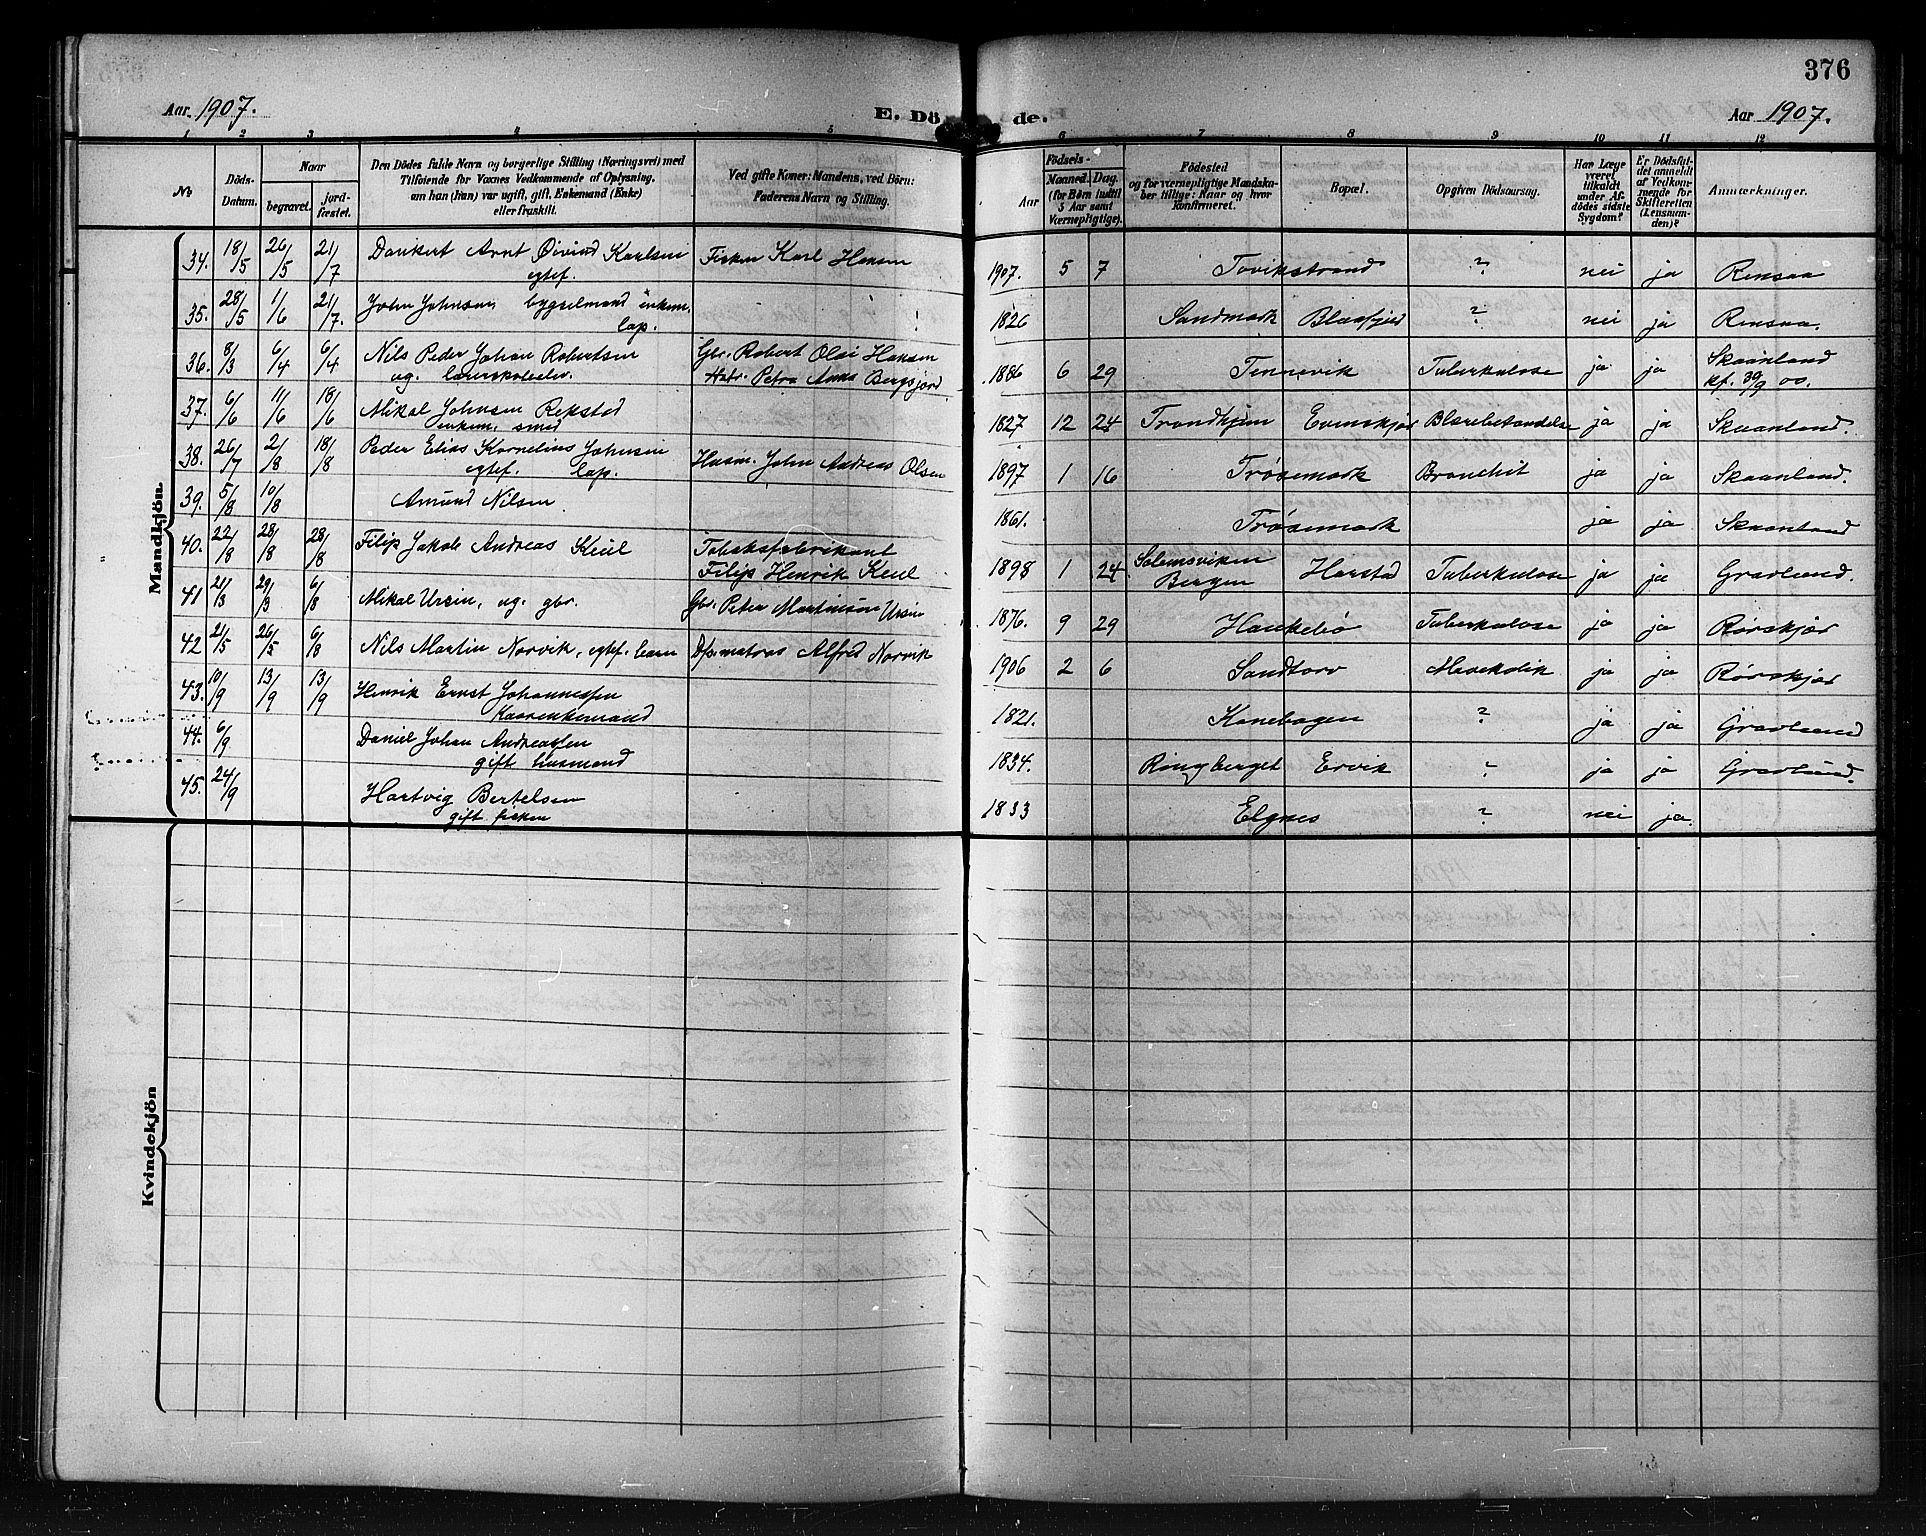 376
Aar 1907.
E. Dö de.
Aar 1907.
1 2 3 4 5 6 7 8 9 10 11 12
No
Döds-Datum.
Naar
begravet.
jord-fæstet.
Den Dödes fulde Navn og borgerlige Stilling (Næringsvei) med
Tilföiende for Voxnes Vedkommende af Oplysning.
om han (hun) var ugift, gift, Enkemand (Enke)
eller fraskilt.
Ved gifte Koner: Mandens, ved Börn:
Faderens Navn og Stilling.
Födsels-
Aar
Maaned. Dag.
(for Börn indtil
5 Aar samt
Værnepligtige).
Födested
og for værnepligtige Mandska-
ber tillige: Naar og hvor
konfirmeret.
Bopæl.
Opgiven Dödsaarsag.
Har Læge
været
tilkaldt
under Af-
dödes sidste
Sygdom?
Er Dödsfal-
det anmeldt
af Vedkom-
mende for
Skifteretten
(Lensman-
den)?
Anmærkninger.
Mandkjön.
34. 18/5 26/5 21/7 Dankert Arnt Øivind Karlsen Fisker Karl Hansen 1907. 5 7 Tovikstrand ? nei ja Rensaa
egtef.
35. 28/5 1/6 21/7. John Johnsen bygselmand enkem. 1826 Sandmark Blaafjeld ? nei ja Rensaa.
lap.
36. 8/3 6/4 6/4 Nils Peder Johan Robertsen Gbr. Robert Olai Hansen 1886 6 29 Tennevik Tuberkulose ja ja Skaanland
ug. lærerskoleelev. Hstr. Petra Anna Bergsjord kf. 30/9 00.
37. 6/6 11/6 18/6 Mikal Johnsen Rekstad 1827 12 24 Trondhjem Evenskjer Blærebetændelse ja ja Skaanland.
enkem. smed
38. 26/7 2/8 18/8 Peder Elias Kornelius Johnsen Husm. John Andreas Olsen 1897 1 16 Trøsemark Bronchit ja ja Skaanland.
egtef. lap.
39. 5/8 10/8 Amund Nilsen 1861. Trøsemark ja ja Skaanland
40. 22/8 28/8 28/8 Filip Jakob Andreas Keul Tobaksfabrikant 1898 1 24 Solemsviken Harstad Tuberkulose ja ja Gravlund.
Filip Henrik Keul Bergen
41 21/3 29/3 6/8 Mikal Ursin, ug. gbr. Gbr. Peter Martinson Ursin 1876. 9 29 Haukebø Tuberkulose ja ja Rørskjær
42 21/5 26/5 6/8 Nils Martin Norvik, egtef. barn Dp.matros Alfred Norvik 1906 2 6 Sandtorv Mavekolik ja ja Rørskjær
43. 10/9 13/9 13/9 Henrik Ernst Johannessen 1821. Kanebogen ? ja ja Gravlund
Kaarenkemand
44. 6/9 Daniel Johan Andreassen 1834. Ringberget Ervik ? ja ja Gravlund.
gift husmand
45. 24/9 Hartvig Bertelsen 1833 Elgnes ? nei ja.
gift fisker
Kvindekjön